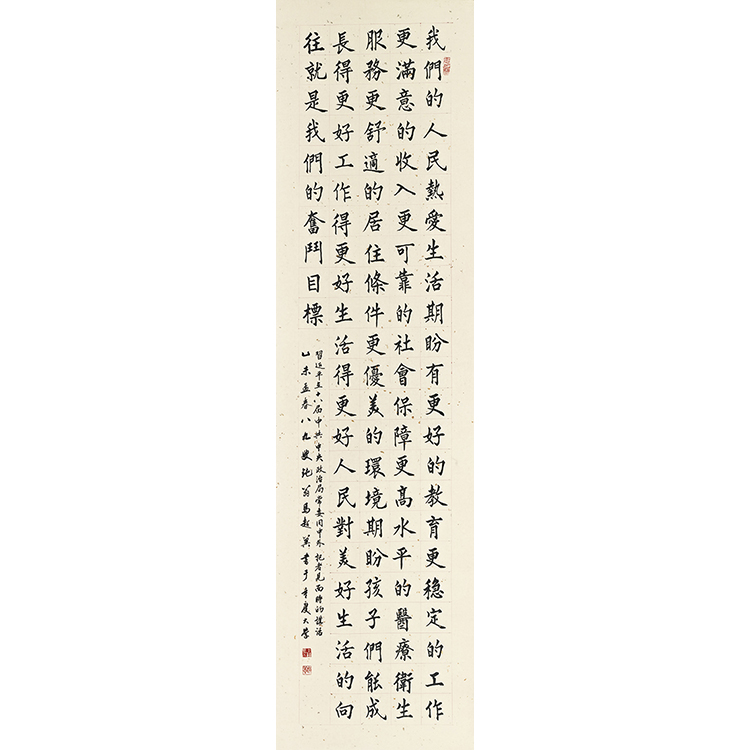 我們的人民熱愛生活期盼有更好的教育更穩定的工作
更滿意的收入更可靠的社會保障更高水平的醫療衛生
服務更舒適的居住條件更優美的環境期盼孩子們能成
長得更好工作得更好生活得更好人民對美好生活的向
往就是我們的奮鬥目標
習近平在十八届中共中央政治局常委同中外記者見面時的講話
乙未孟春八九叟翁馬書于重慶大學